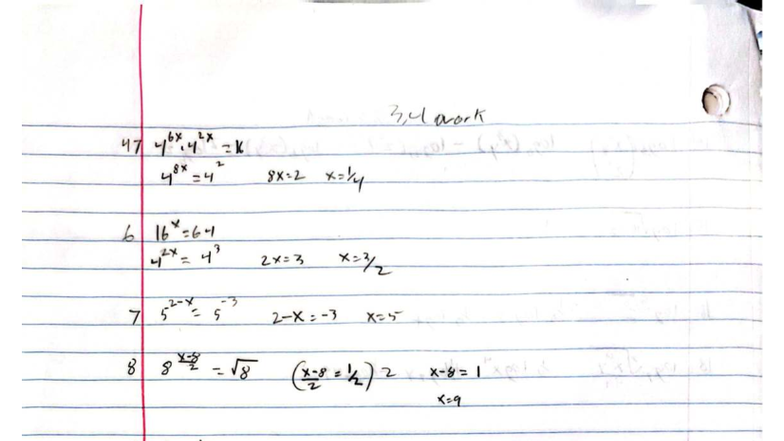 3,4 work
47 4^{6x} · 4^{2x} = 16
4^{8x} = 4^2 8x=2 x=1/4
6 16^x = 64
4^{2x} = 4^3 2x=3 x=3/2
7 5^{2-x} = 5^{-3} 2-x=-3 x=5
8 8^{\frac{x-8}{2}} = √8 (\frac{x-8}{2} = 1/2) 2 x-8=1
x=9